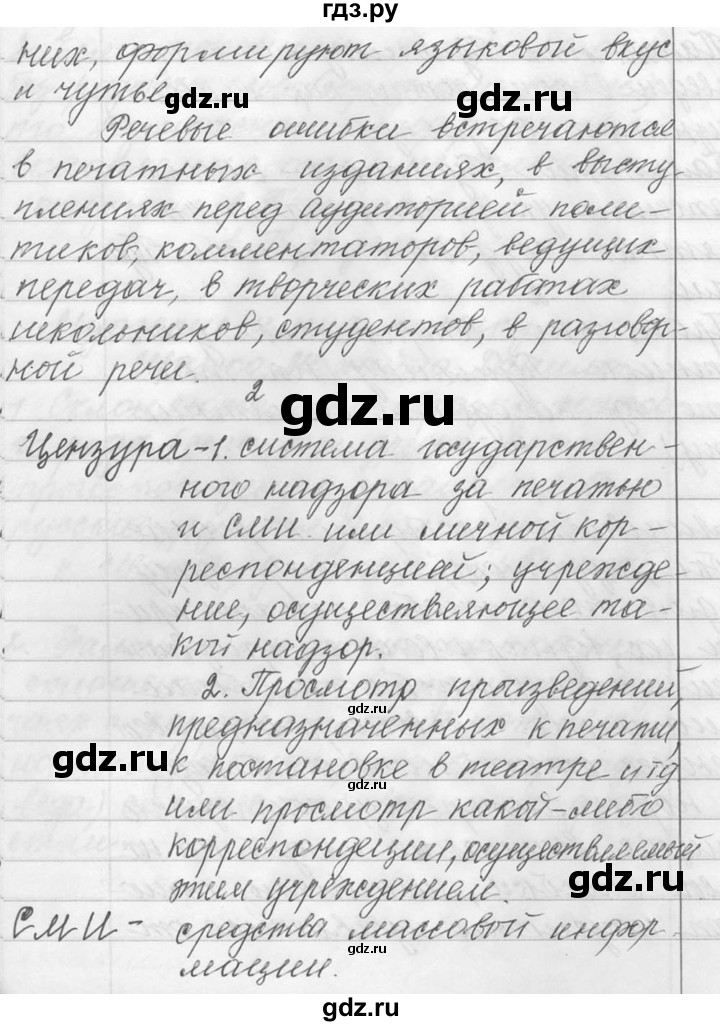 гдз.ру
них, формируют языковой вкус
и чутье
gdz.ru
gdz.ru
Речевые ошибки встречаются
в печатных изданиях, в высту-
плениях перед аудиторией поли-
тиков, комментаторов, ведущих
передач, в творческих работах
школьников, студентов, в разговор-
ной речи.
2
gdz.ru
Цензура - 1. система государствен-
ного надзора за печатью
и СМИ или личной кор-
респонденцией; учрежде-
ние, осуществляющее та-
кой надзор.
2. Просмотр произведений,
gdz.ru
предназначенных к печати,
gdz.ru
к постановке в театре и тд
gdz.ru
или просмотр какой-либо
корреспондеции, осуществляемый
этим учреждением.
gdz.ru
СМИ - средства массовой инфор-
gdz.ru
мации.
gdz.ru